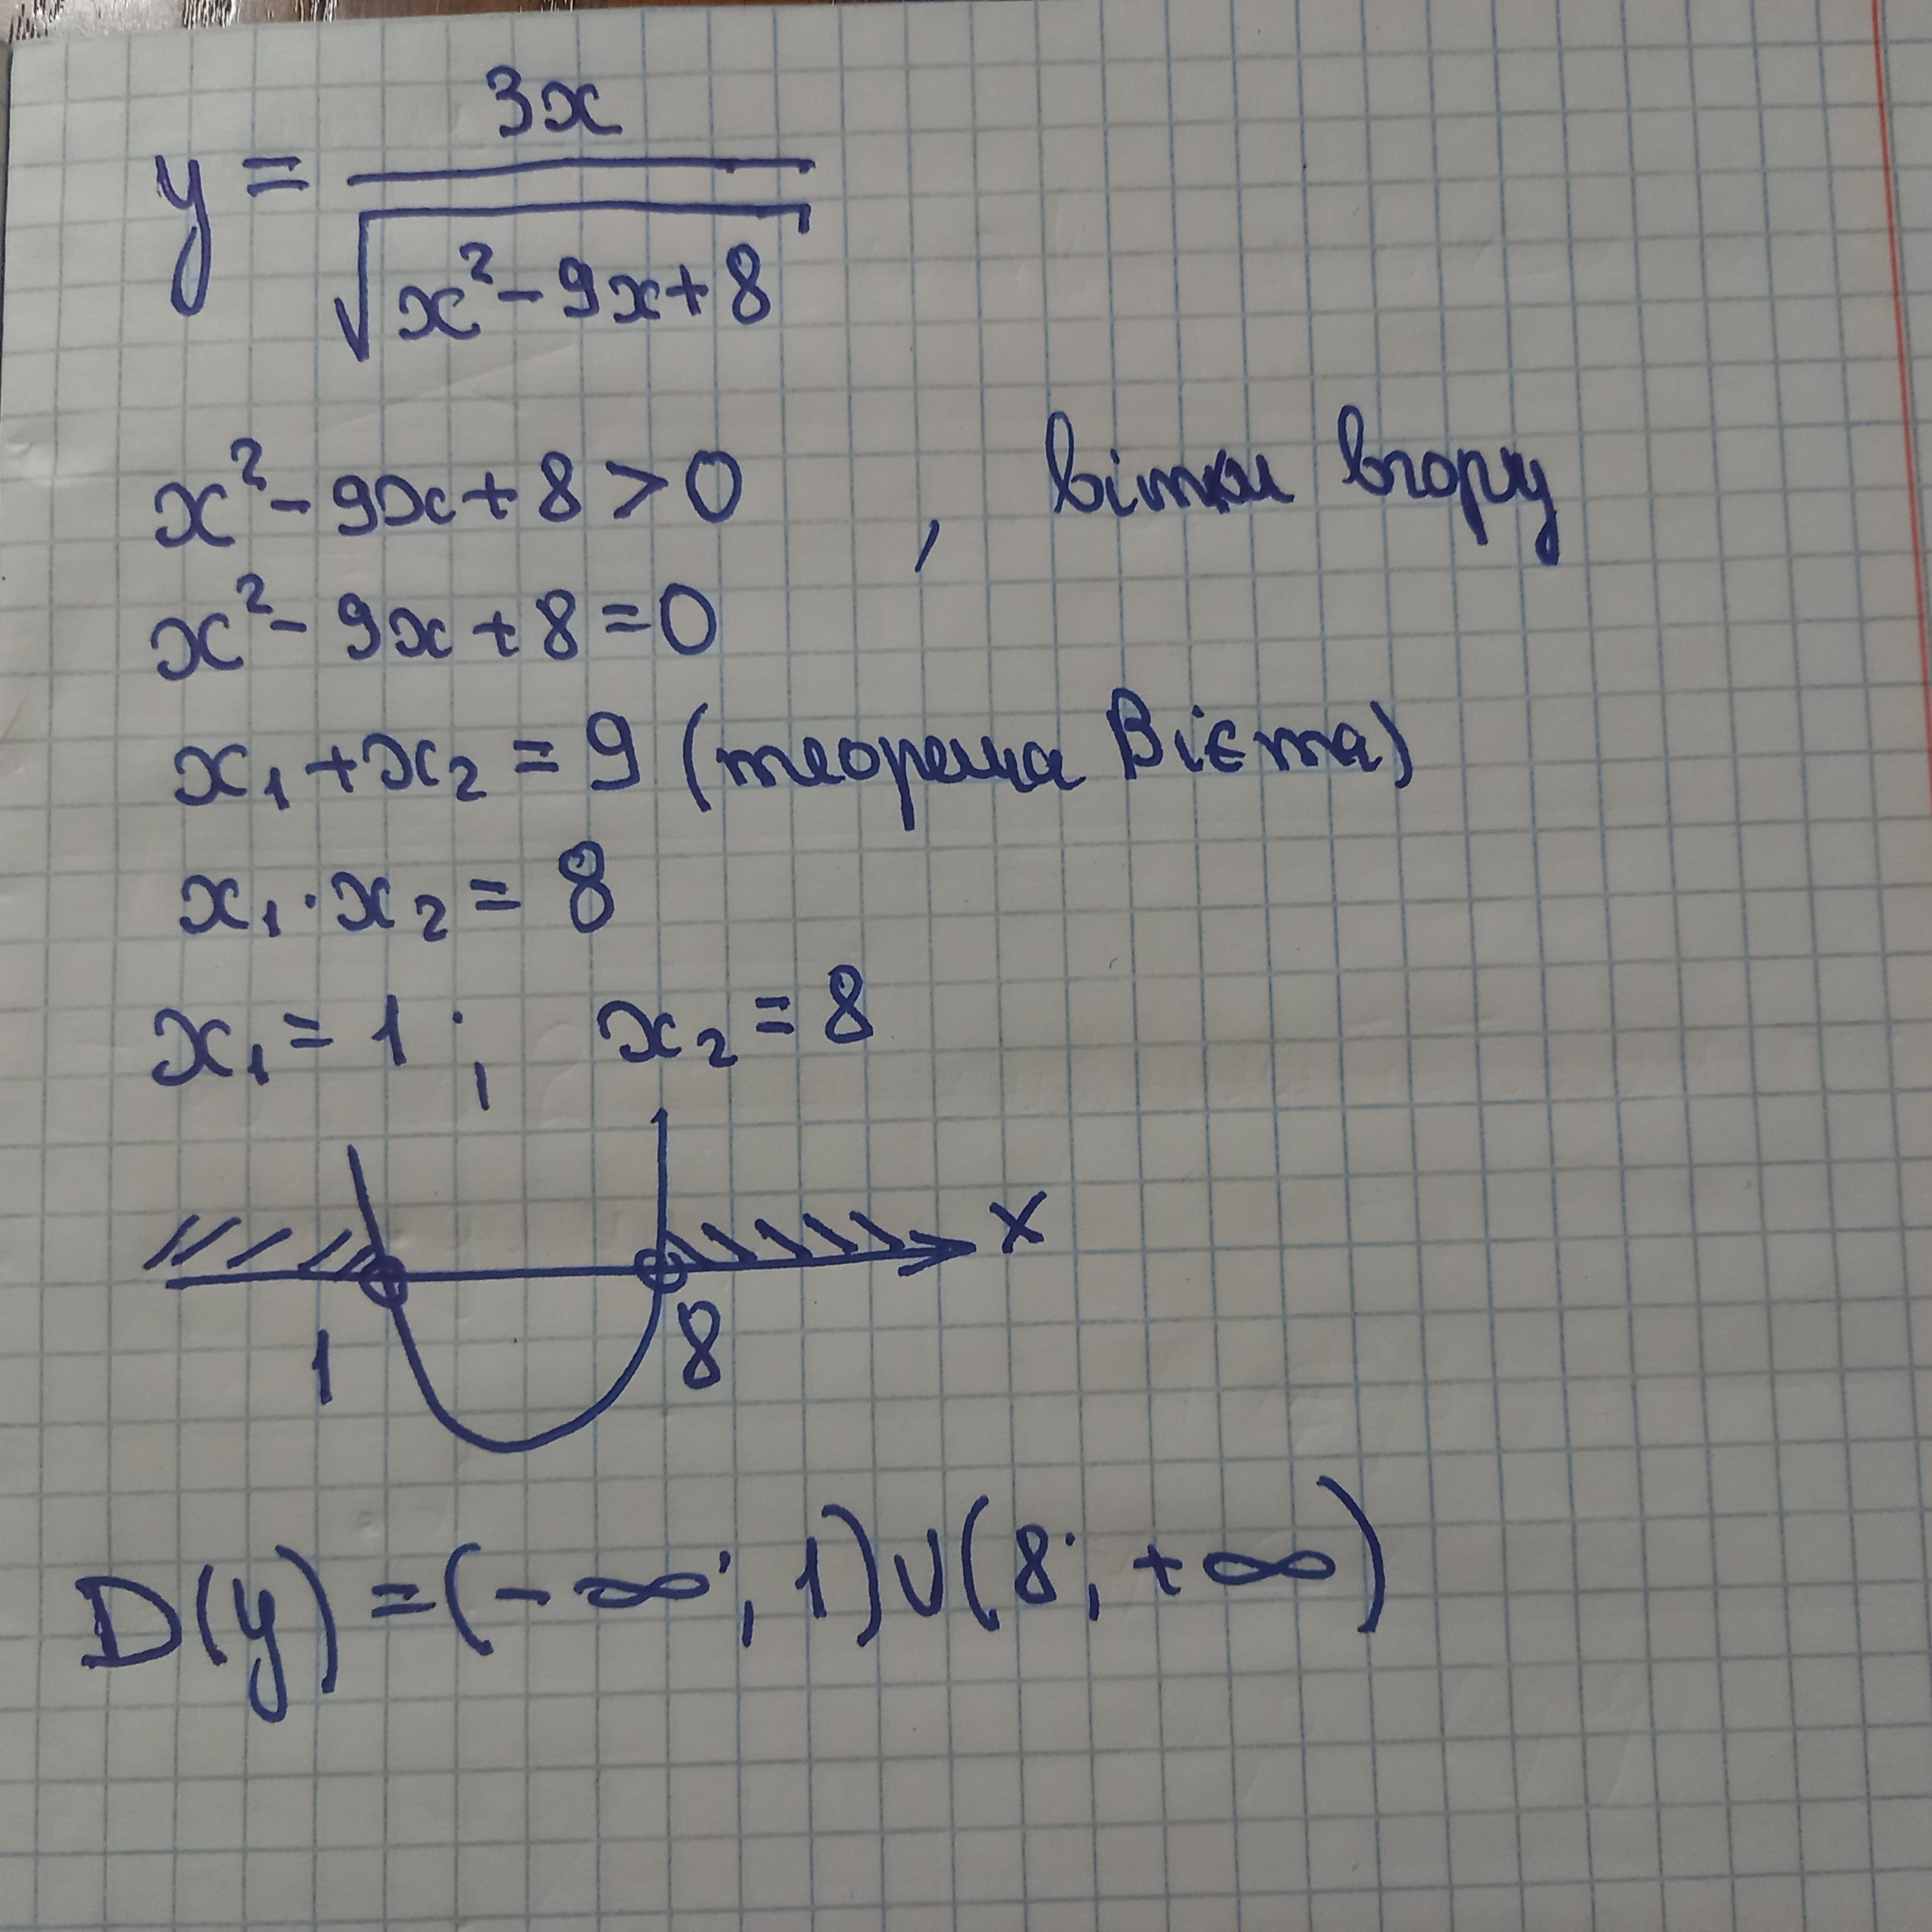 y = 3x / √(x² - 9x + 8)
x² - 9x + 8 > 0 , вітки вгору
x² - 9x + 8 = 0
x₁ + x₂ = 9 (теорема Вієта)
x₁ · x₂ = 8
x₁ = 1 ; x₂ = 8
x
1 8
D(y) = (-∞; 1) ∪ (8; +∞)